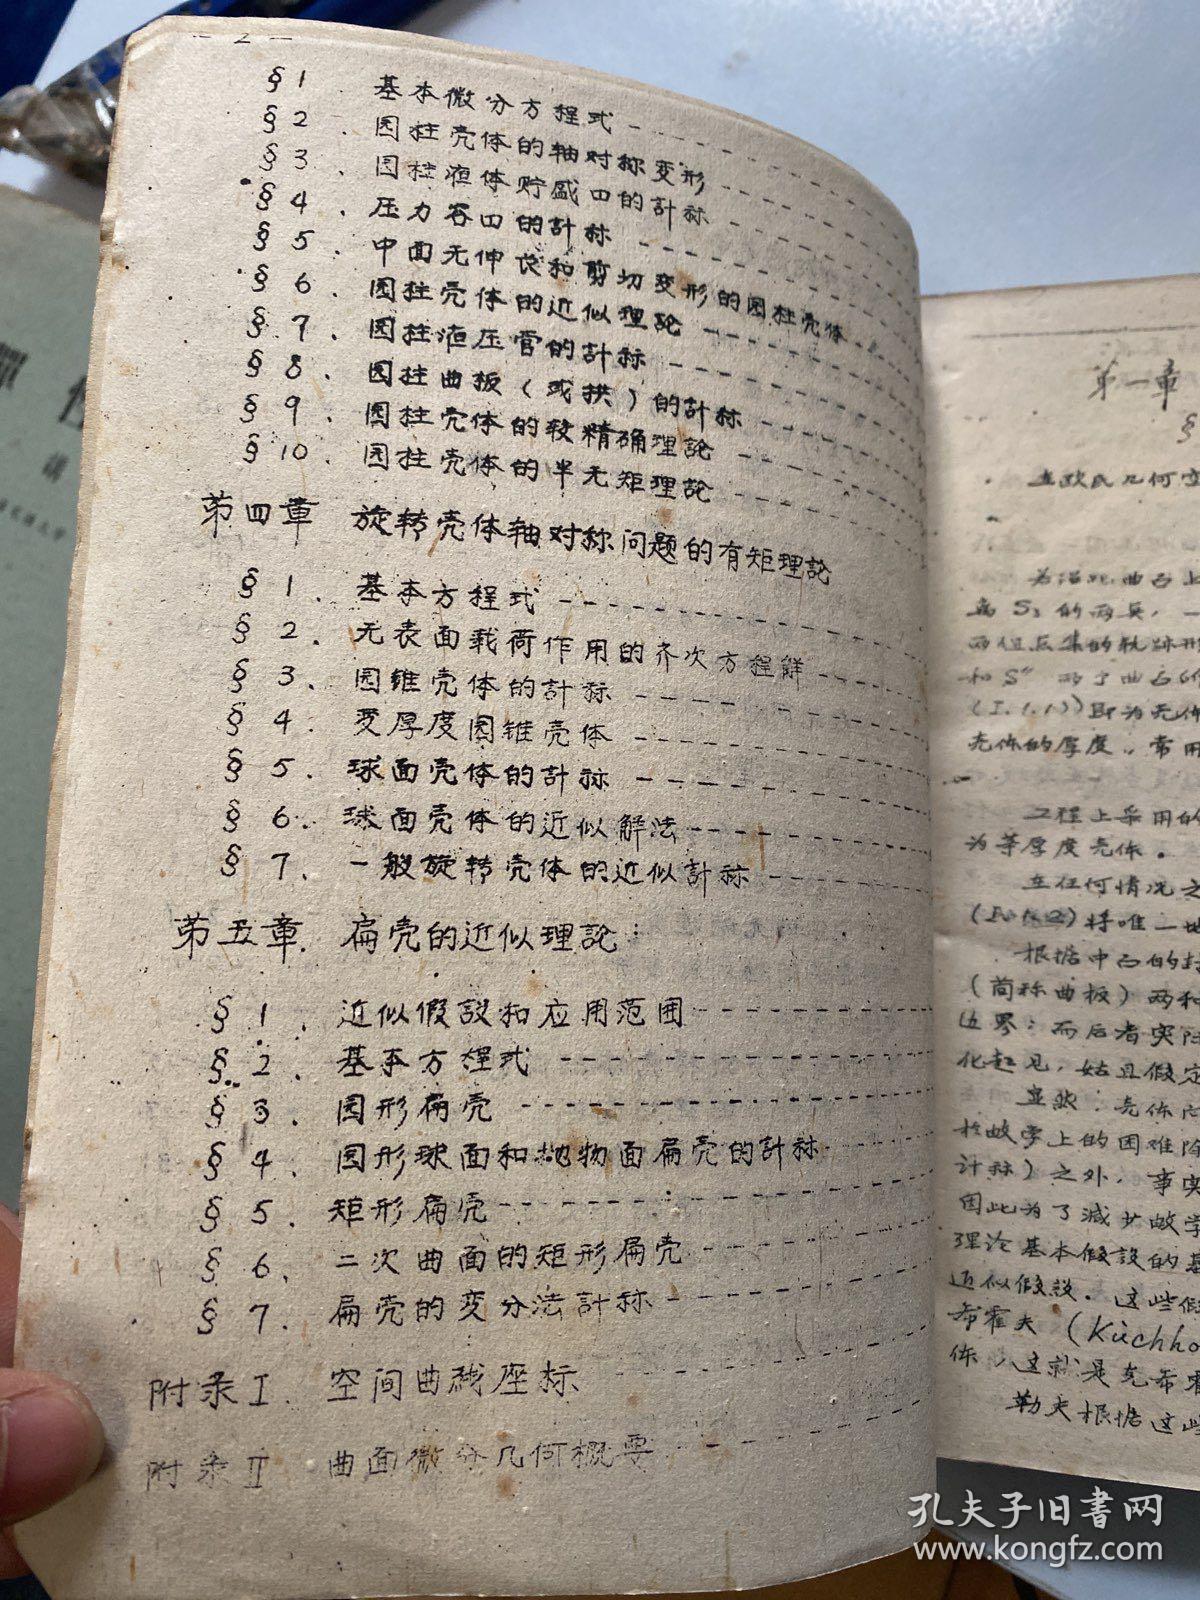 — 2 —
§1 基本微分方程式
§2. 园柱壳体的轴对称变形
§3. 园柱液体贮盛口的計祘
§4. 压力容口的計祘
§5. 中面无伸长和剪切变形的园柱壳体
§6. 园柱壳体的近似理論
§7. 园柱液压管的計祘
§8. 园柱曲板（或拱）的計祘
§9. 园柱壳体的较精确理論
§10. 园柱壳体的半无矩理論
第四章 旋转壳体轴对称问题的有矩理論
§1. 基本方程式
§2. 无表面载荷作用的齐次方程解
§3. 园锥壳体的計祘
§4. 变厚度园锥壳体
§5. 球面壳体的計祘
§6. 球面壳体的近似解法
§7. 一般旋转壳体的近似計祘
第五章. 扁壳的近似理論
§1. 近似假設和应用范围
§2. 基本方程式
§3. 园形扁壳
§4. 园形球面和抛物面扁壳的計祘
§5. 矩形扁壳
§6. 二次曲面的矩形扁壳
§7. 扁壳的变分法計祘
附录I 空间曲线座标
附录II 曲面微分几何概要
第一章
§
在欧氏几何空
为沿此曲面上
两位点集的轨跡形
(I.1.1)) 即为壳体
壳体的厚度，常用
工程上采用的
为等厚度壳体.
在任何情况之
将唯一地
根据中面的封
（简称曲板）两种
边界；而后者实际
化起见，姑且假定
显然，壳体问
於数学上的困难除
计祘）之外，事实
因此为了減少数学
理论基本假設的基
近似假設. 这些假
希霍夫 (Kichho
体，这就是克希霍
勒夫根据这些
孔夫子旧书网
www.kongfz.com